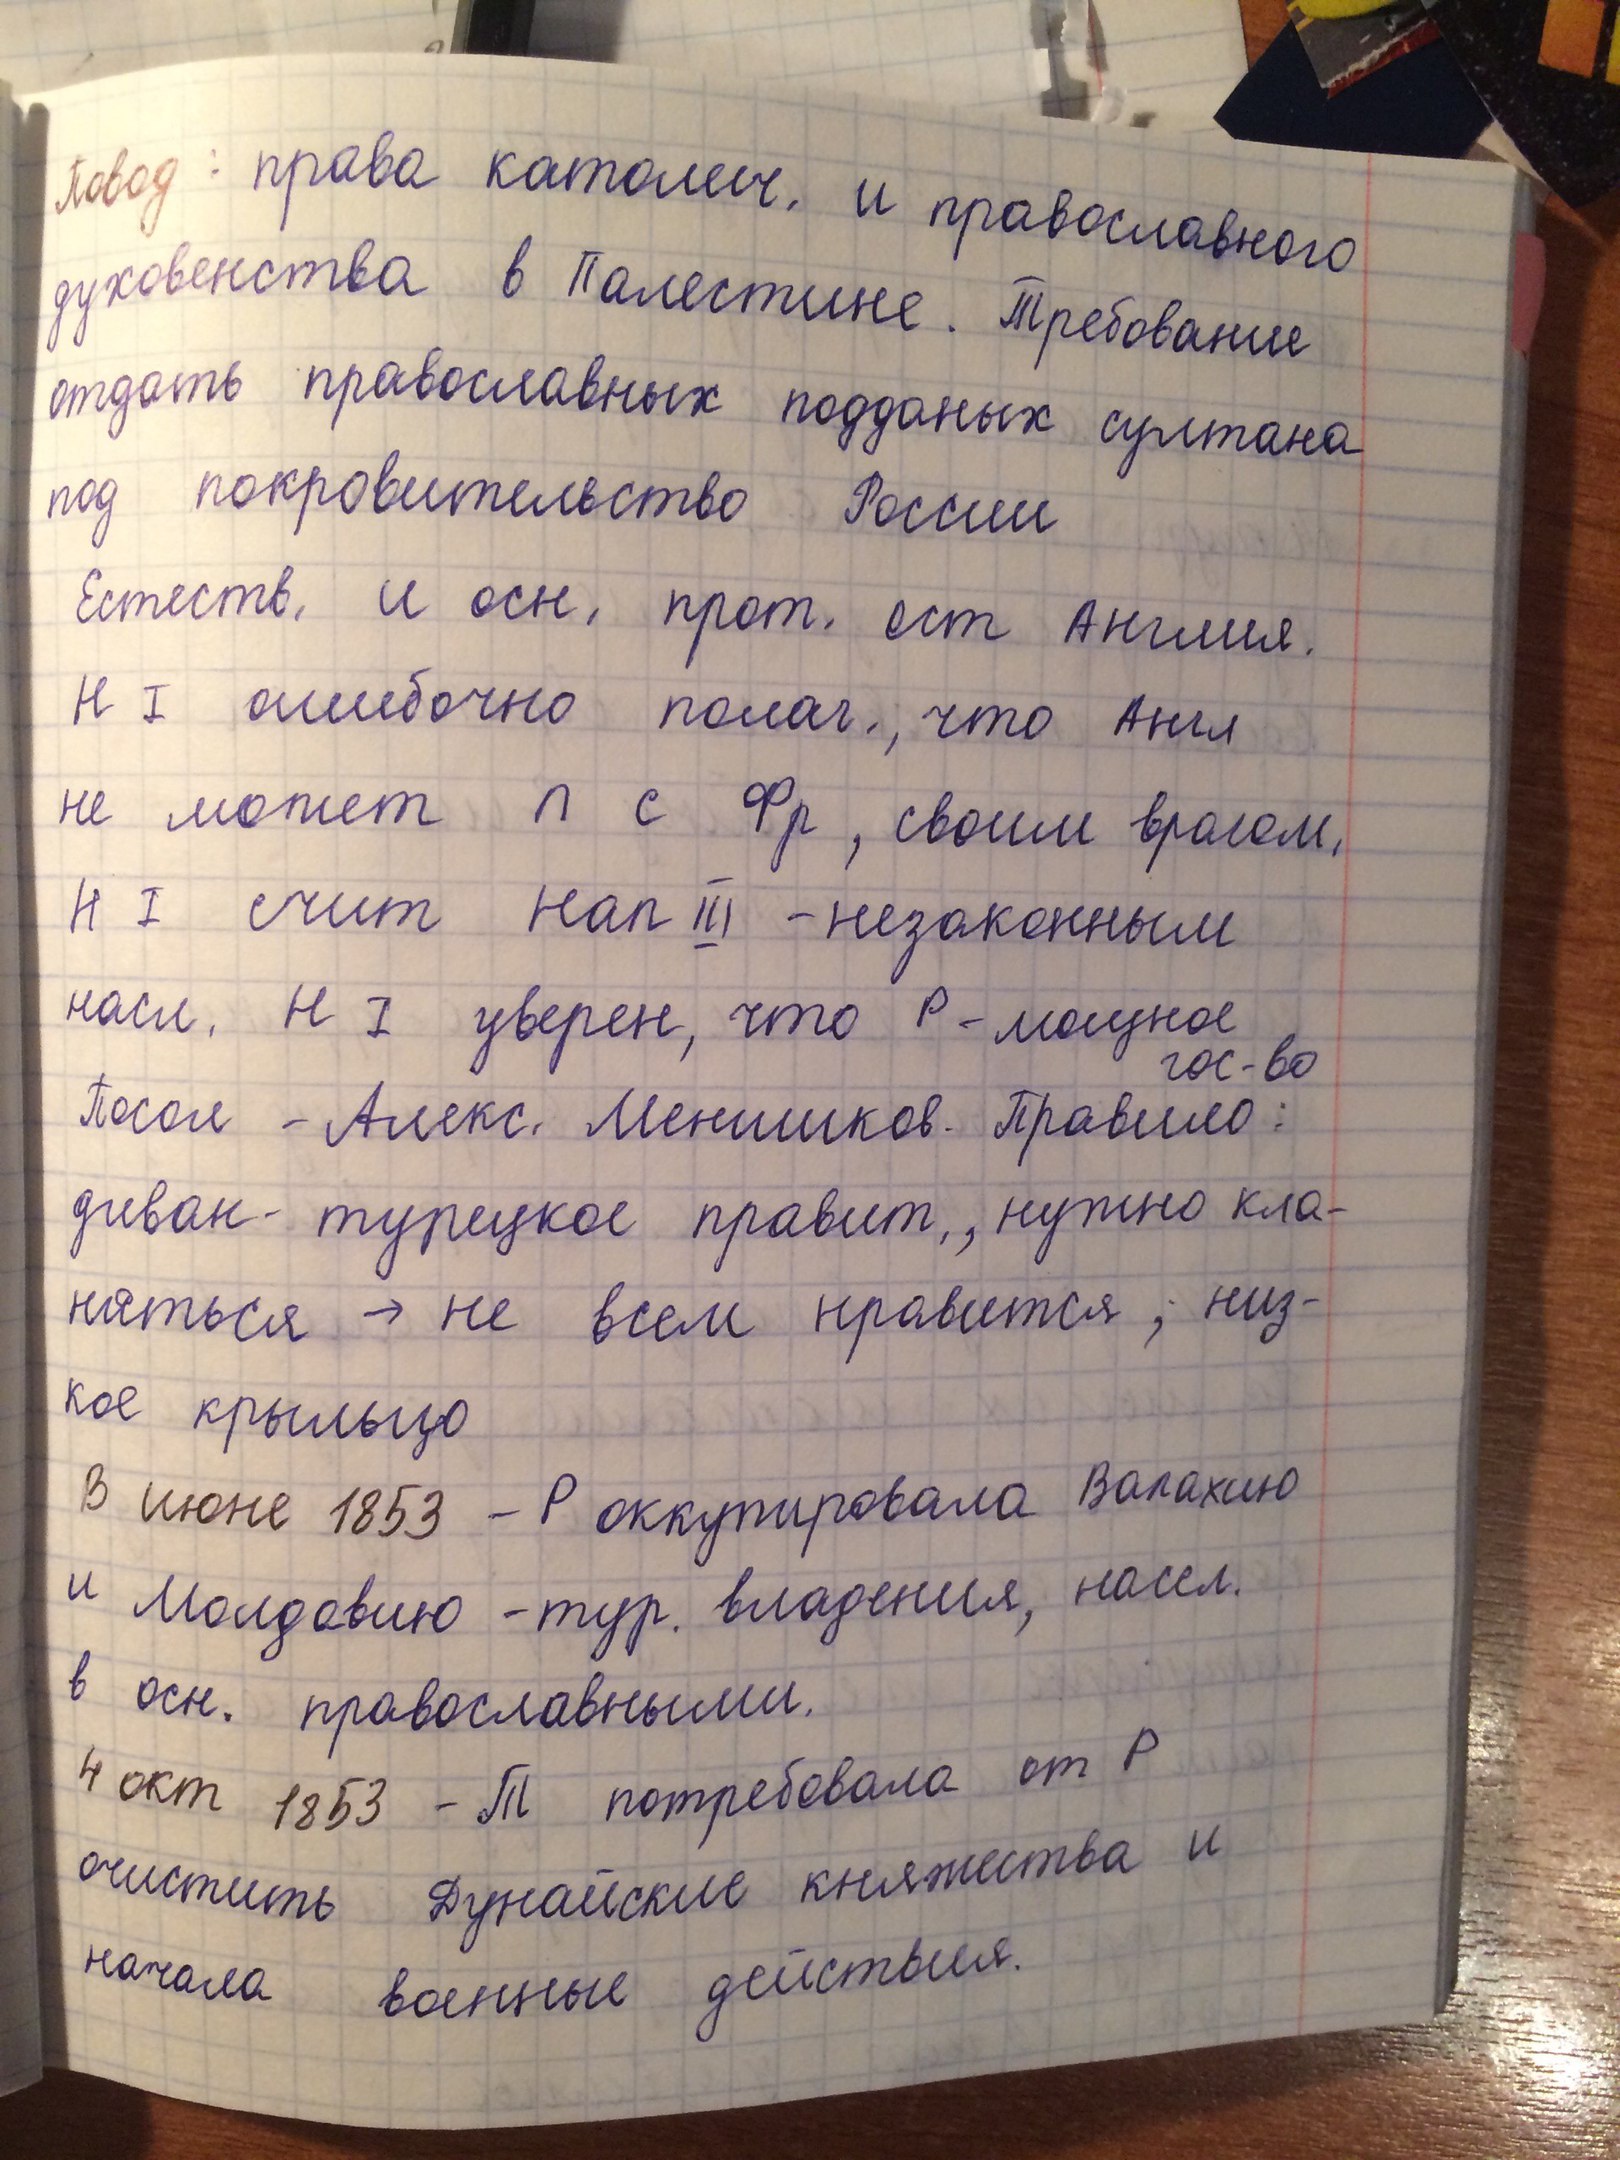 Повод: права католич. и православного
духовенства в Палестине. Требование
отдать православных подданых султана
под покровительство России
Естеств. и осн. прот. ест Англия.
Н I ошибочно полаг., что Англ
не может ∩ с Фр, своим врагом.
Н I счит Нап III - незаконным
насл. Н I уверен, что Р - мощное
гос-во
Посол - Алекс. Меншиков. Правило:
диван - турецкое правит., нужно кла-
няться → не всем нравится; низ-
кое крыльцо
В июне 1853 - Р оккупировала Валахию
и Молдавию - тур. владения, насел.
в осн. православными.
4 окт 1853 - Т потребовала от Р
очистить Дунайские княжества и
начала военные действия.